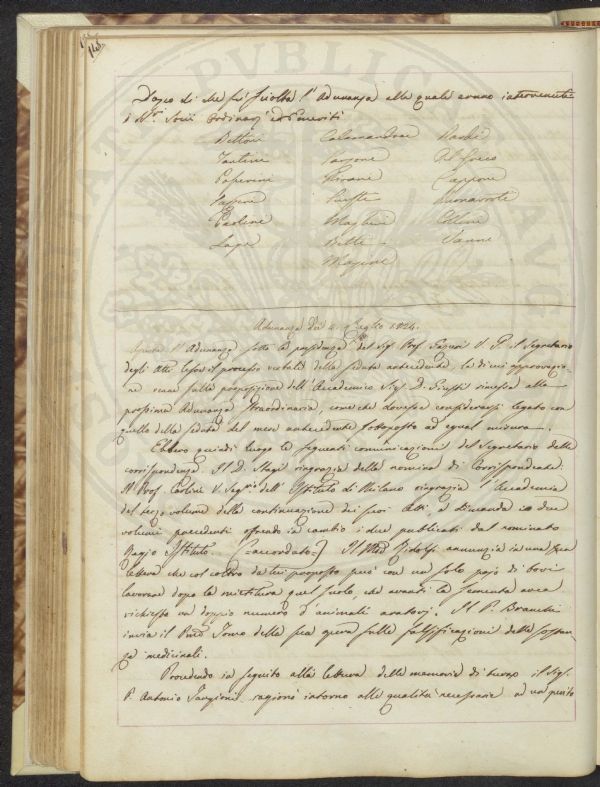 145.
Dopo di che fù sciolta l'Adunanza alla quale erano intervenuti
i SS.ri Socj Ordinarj ed Emeriti
Bettoni Calamandrei Nardi
Tantini Sarzone Del Greco
Paperini Tassone Cappone
Passeri Giusti Buonarroti
Paoline Magheri Collini
Lapi Betti Vanni
Mazzoni
Adunanza del dì 4. Luglio 1824.
Aperta l'Adunanza sotto la presidenza del Sig. Prof. Gazzeri il Segretario
degli Atti lesse il processo verbale della seduta antecedente, la di cui approvazio-
ne venne sulla proposizione dell'Accademico Sig. D. Giusti rimessa alla
prossima Adunanza straordinaria, come che dovesse considerarsi legato con
quello della seduta del mese antecedente sottoposto ad egual misura.
Ebbero quindi luogo le seguenti comunicazioni del Segretario delle
corrispondenze. Il D. Stagi ringrazia della nomina di Corrispondente.
Il Prof. Carlini V. Seg.rio dell'Istituto di Milano ringrazia l'Accademia
del terzo volume della continuazione dei suoi Atti, e dimanda i due
volumi precedenti offrendo in cambio i due pubblicati dal nominato
Regio Istituto. (=accordato=) Il March. Ridolfi annunzia in una sua
lettera che col coltro da lui proposto può con un solo pajo di bovi
lavorare dopo la mietitura quel suolo, che avanti la sementa avea
richiesto un doppio numero d'animali aratorj. Il P. Branchi
invia il Primo Tomo della sua opera sulle falsificazioni delle sostan-
ze medicinali.
Procedendo in seguito alla lettura delle memorie di turno il Sig.
P. Antonio Tangioni ragionò intorno alle qualità necessarie ad un perito